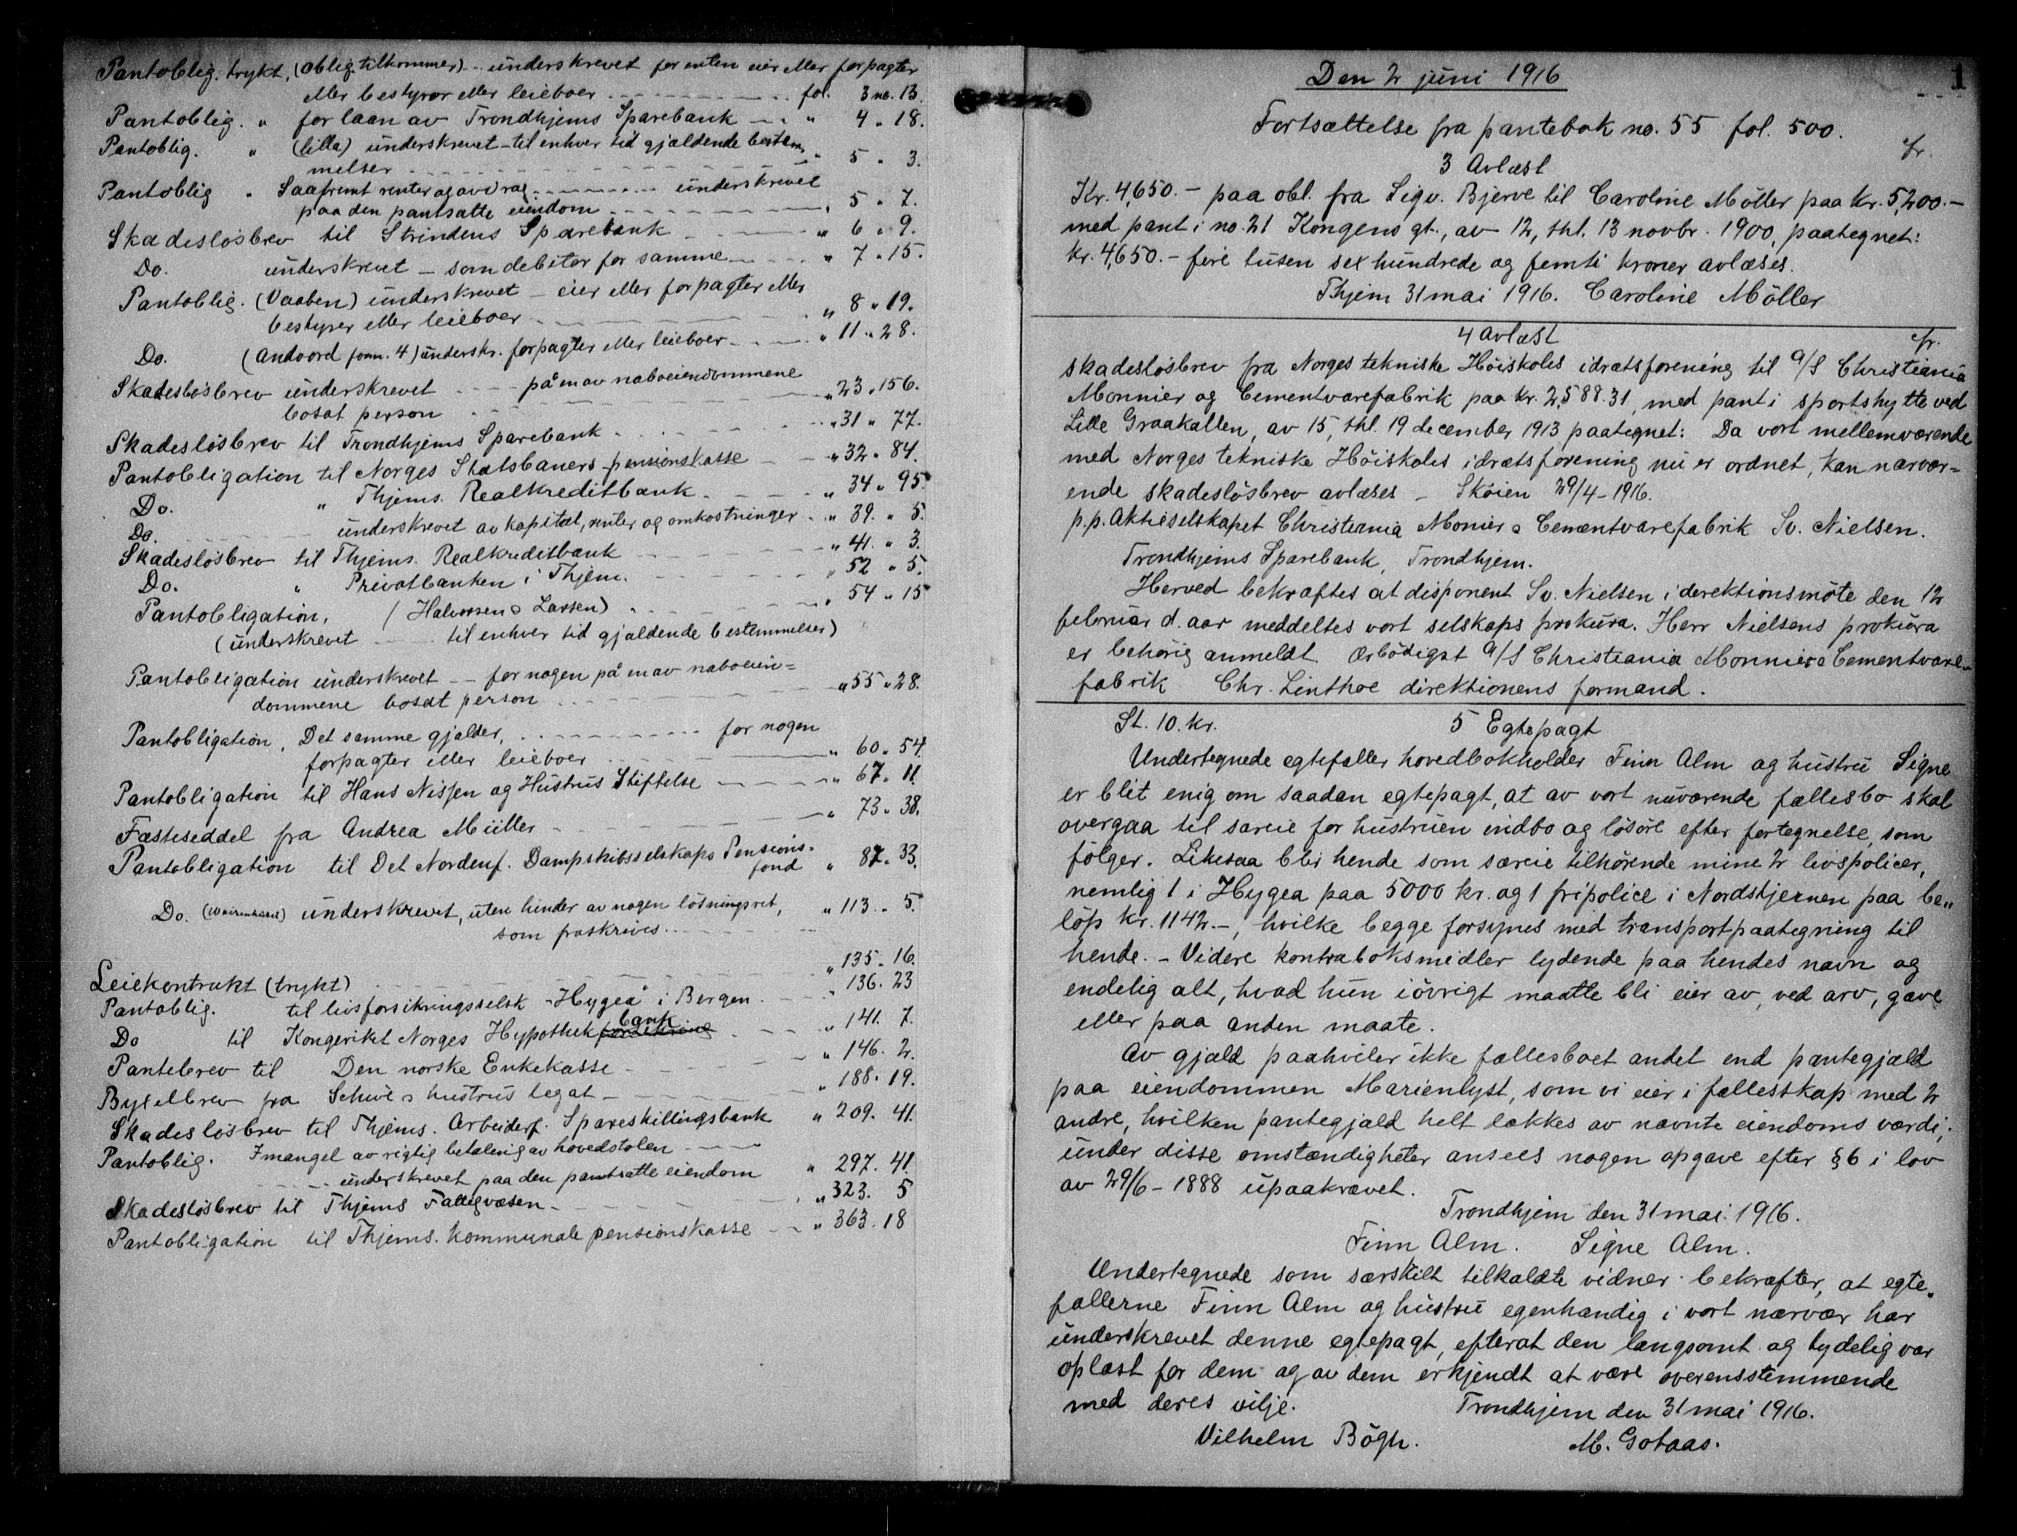 Pantoblig. trykt, (Oblig. tilkommer) .. underskrevet for enten eier eller forpagter
eller bestyrer eller leieboer - - - fol. 3 no. 13.
Pantoblig. " for laan av Trondhjems Sparebank - " 4 " 18.
Pantoblig. " (lilla) underskrevet - til enhver tid gjældende bestem-
melser - - - " 5 " 3.
Pantoblig " Saafremt renter og avdrag - - - underskrevet
paa den pantsatte eiendom - - - " 5 " 7.
Skadesløsbrev til Strindens Sparebank - - - " 6 " 9.
Do. underskrevet - som debitor for samme - - - " 7 " 15.
Pantoblig. (Vaaben) underskrevet - eier eller forpagter eller
bestyrer eller leieboer - - - " 8 " 19.
Do. (Andvord form. 4) underskr. forpagter eller leieboer - - - " 11 " 28.
Skadesløsbrev underskrevet - - - på en av naboeiendommene
bosat person - - - " 23 " 156.
Skadesløsbrev til Trondhjems Sparebank - - - " 31 " 77.
Pantobligation til Norges Statsbaners pensionskasse - - " 32 " 84.
Do. " Thjems. Realkreditbank - - - " 34 " 95.
Do. - - - underskrevet av kapital, renter og omkostninger - " 39. " 5.
Skadesløsbrev til Thjems. Realkreditbank - - - " 41. " 3.
Do. " Privatbanken i Thjem. - - - " 52 " 5.
Pantobligation, (Halvorsen & Larsen) - - - " 54 " 15
(underskrevet - - - til enhver tid gjældende bestemmelser)
Pantobligation underskrevet - - for nogen på en av naboeien=
dommene bosat person - - - " 55 " 28.
Pantobligation, Det samme gjælder, - - - for nogen
forpagter eller leieboer - - - " 60 " 54.
Pantobligation til Hans Nissen og Hustrus Stiftelse - - - " 67 " 11.
Fæsteseddel fra Andrea Müller - - - " 73 " 38.
Pantobligation til Det Nordenf. Dampskibsselskaps Pensions-
fond " 87 " 33.
Do. (Waisenhuset) underskrevet, uten hinder av nogen løsningsret,
som fraskrives - - - " 113 " 5.
Leiekontrakt (trykt) - - - " 135 " 16.
Pantoblig. til livsforsikringsselsk "Hygea" i Bergen - - - " 136. 23
Do til Kongeriket Norges Hypothekbank - - - " 141. 7.
Pantebrev til Den norske Enkekasse - - - " 146. 2.
Bygselbrev fra Schive & hustrus legat - - - " 188. 19.
Skadesløsbrev til Thjems. Arbeiderf. Spareskillingsbank " 209. 41.
Pantoblig. I mangel av rigtig betaling av hovedstolen - - -
- - - underskrevet paa den pantsatte eiendom " 297. 41.
Skadesløsbrev til Thjems Fattigvæsen - - - " 323. 5
Pantobligation til Thjems. Kommunale pensionskasse - - " 363. 18
1
Den 2 juni 1916
Fortsættelse fra pantebok no. 55 fol. 500.
3 Avlæst
fr.
Kr. 4,650.- paa obl. fra Sigv. Bjerve til Caroline Möller paa kr. 5,200.-
med pant i no. 21 Kongens gt., av 12, thl. 13 novbr. 1900, paategnet:
kr. 4,650.- fire tusen sex hundrede og femti kroner avlæses.
Thjem 31 mai 1916. Caroline Möller
4 Avlæst
fr.
skadesløsbrev fra Norges tekniske Høiskoles idrætsforening til A/S Christiania
Monnier og Cementvarefabrik paa kr. 2,588.31, med pant i sportshytte ved
Lille Graakallen, av 15, thl. 19 december 1913 paategnet: Da vort mellemværende
med Norges tekniske Høiskoles idrætsforening nu er ordnet, kan nærvær=
ende skadesløsbrev avlæses - Skøien 29/4-1916.
p.p. Aktieselskapet Christiania Monier & Cementvarefabrik Sv. Nielsen.
Trondhjems Sparebank, Trondhjem.
Herved bekræftes at disponent Sv. Nielsen i derektionsmøte den 12
februar d. aar meddeltes vort selskaps prokura. Herr Nielsens prokura
er behørig anmeldt. Ærbödigst A/S Christiania Monnier & Cementvare-
fabrik Chr. Linthoe direktionens formand.
St. 10. kr. 5 Egtepagt
Undertegnede egtefæller hovedbokholder Finn Alm og hustru Signe
er blit enig om saadan egtepagt, at av vort nuværende fællesbo skal
overgaa til særeie for hustruen indbo og løsøre efter fortegnelse, som
følger. Likesaa blir hende som særeie tilhørende mine 2 livspolicer,
nemlig 1 i Hygea paa 5000 kr. og 1 fripolice i Nordstjernen paa be"
løp kr. 1142.-, hvilke begge forsynes med transportpaategning til
hende. - Videre kontraboksmidler lydende paa hendes navn og
endelig alt, hvad hun iövrigt maatte bli eier av, ved arv, gave
eller paa anden maate.
Av gjæld paahviler ikke fællesboet andet end pantegjæld
paa eiendommen Marienlyst, som vi eier i fællesskap med 2
andre, hvilken pantegjæld helt dækkes av nævnte eiendoms værdi;
under disse omstændigheter ansees nogen opgave efter § 6 i lov
av 29/6-1888 upaakrævet.
Trondhjem den 31 mai 1916.
Finn Alm. Signe Alm.
Undertegnede som særskilt tilkaldte vidner bekræfter, at egte"
fællerne Finn Alm og hustru egenhændig i vort nærvær har
underskrevet denne egtepagt, efterat den langsomt og tydelig var
oplæst for dem og av dem erkjendt at være overensstemmende
med deres vilje. Trondhjem den 31 mai 1916.
Vilhelm Bögh. M. Gotaas.